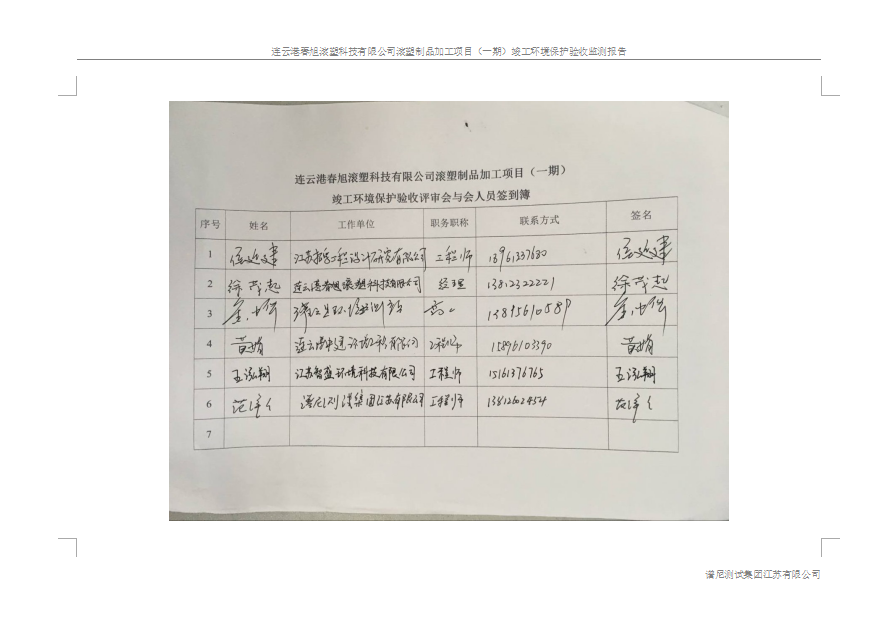 连云港春旭滚塑科技有限公司滚塑制品加工项目（一期）竣工环境保护验收监测报告
连云港春旭滚塑科技有限公司滚塑制品加工项目（一期）
竣工环境保护验收评审会与会人员签到簿
序号 姓名 工作单位 职务职称 联系方式 签名
1 工程师 13961337680
2 徐茂起 连云港春旭滚塑科技有限公司 经理 13812322221 徐茂起
3 13895610589
4 黄娟 工程师 15896103390 黄娟
5 王泓翔 江苏智盛环境科技有限公司 工程师 15161376765 王泓翔
6 谱尼测试集团江苏有限公司 工程师 13812602454
7
谱尼测试集团江苏有限公司